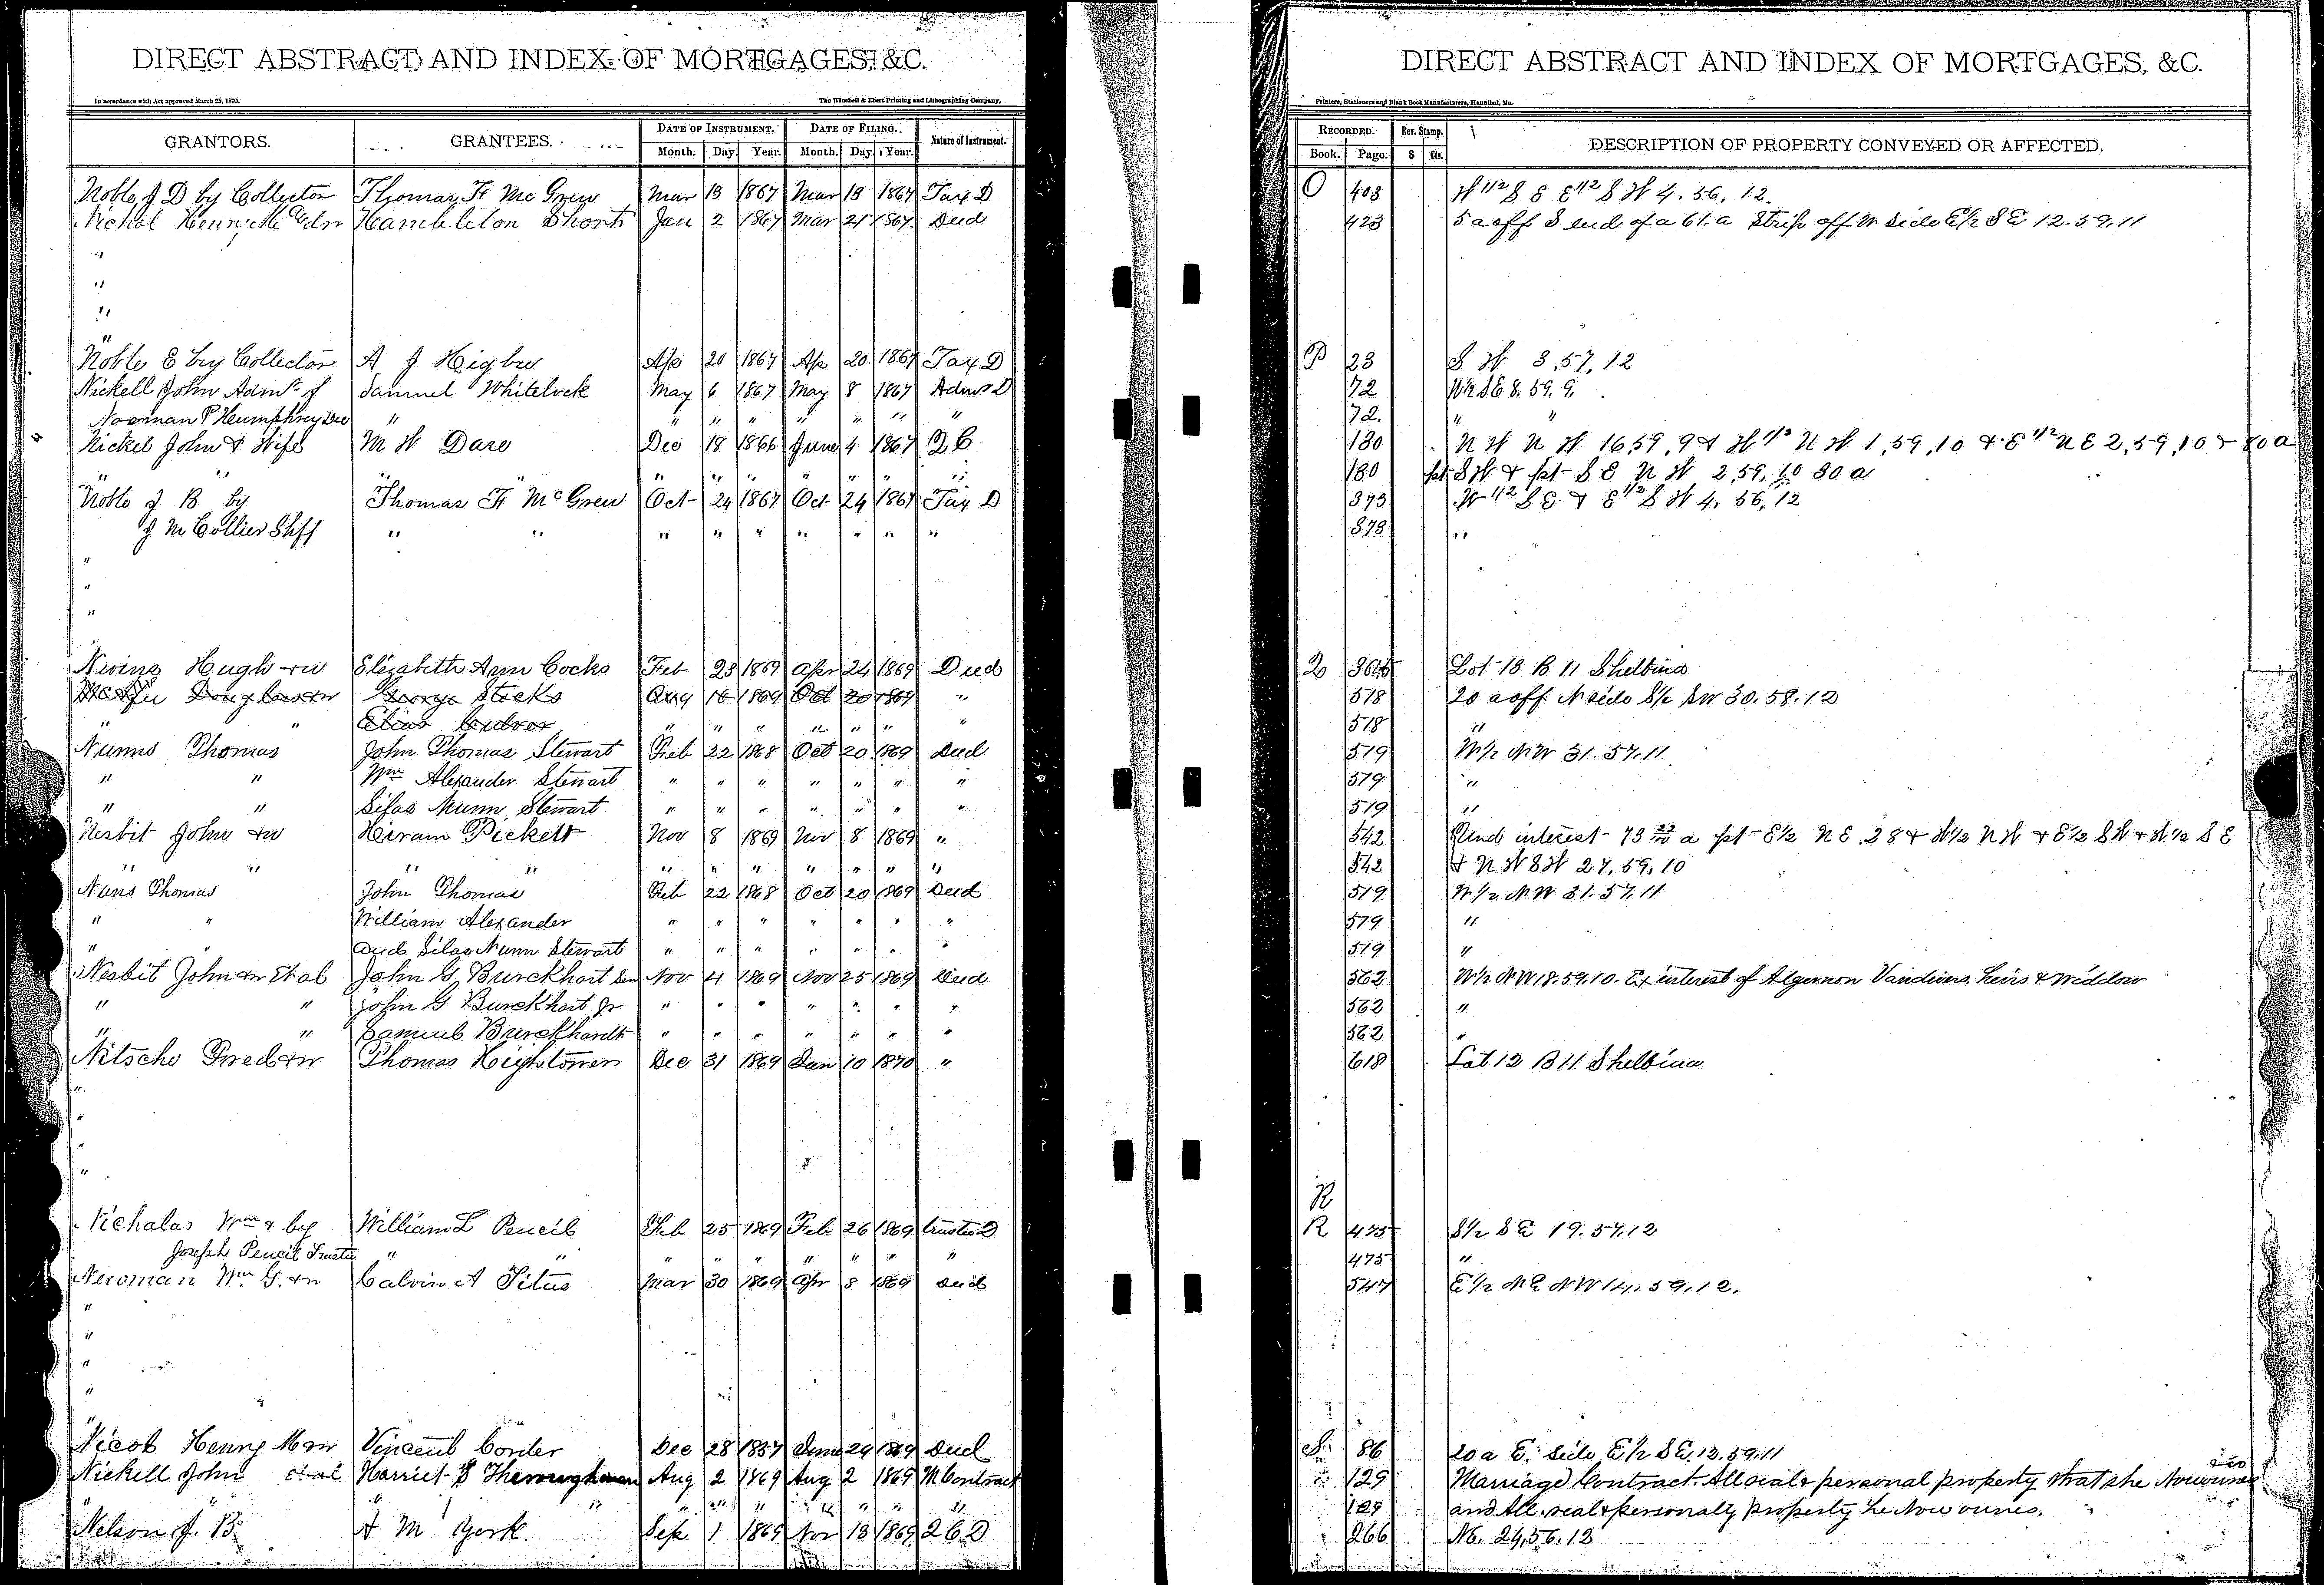 DIRECT ABSTRACT AND INDEX OF MORTGAGES, &C.
In accordance with Act approved March 25, 1870.
The Winchell & Ebert Printing and Lithographing Company,
GRANTORS. GRANTEES. DATE OF INSTRUMENT. DATE OF FILING. Nature of Instrument.
Month. Day. Year. Month. Day. Year.
Noble, J D by Collector Thomas F McGrew Mar 13 1867 Mar 13 1867 Tax D
Nichol Henry Adm Hambleton Shortt Jan 2 1867 Mar 21 1867 Deed
"
"
"
"
Noble E by Collector A J Higbee Apr 20 1867 Apr 20 1867 Tax D
Nickell John Admr of Samuel Whitelock May 6 1867 May 8 1867 Adms D
Norman P Heumphrey Dec " " " " " " " "
Nickel John & Wife M W Dare Dec 18 1866 June 4 1867 Q C
" " " " " " " " "
Noble J B by Thomas F McGrew Oct 24 1867 Oct 24 1867 Tax D
J M Collier Shff " " " " " " " " "
"
"
"
Nivins Hugh & w Elizabeth Ann Cocks Feb 23 1869 Apr 24 1869 Deed
George Stocks Aug 16 1869 Oct 20 1869 "
" " Elias " " " " " " "
Nunns Thomas John Thomas Stewart Feb 22 1868 Oct 20 1869 Deed
" " Wm Alexander Stewart " " " " " " "
" " Silas Munn Stewart " " " " " " "
Nesbit John & w Hiram Pickett Nov 8 1869 Nov 8 1869 "
" " " " " " " " " " "
Nuns Thomas John Thomas Feb 22 1868 Oct 20 1869 Deed
" " William Alexander " " " " " " "
" " and Silas Nunn Stewart " " " " " " "
Nesbit John & w et al John G Burckhart Sen Nov 4 1869 Nov 25 1869 Deed
" " John G Burckhart Jr " " " " " " "
" " Samuel Burckhardt " " " " " " "
Nitsche Fred & w Thomas Hightower Dec 31 1869 Jan 10 1870 "
"
"
"
"
Nichalas Wm & by William L Pencil Feb 25 1869 Feb 26 1869 Trustee D
Joseph Pencil Trustee " " " " " " " " "
Newman Wm G. & w Calvin A Titus Mar 30 1869 Apr 8 1869 Deed
"
"
"
"
"
Nicol Henry M & w Vincent Corder Dec 28 1857 June 29 1869 Deed
Nickell John et al Harriet Thoroughman Aug 2 1869 Aug 2 1869 M Contract
" " " " " " " " "
Nelson J. B. A M York. Sep 1 1869 Nov 13 1869 2 C D
DIRECT ABSTRACT AND INDEX OF MORTGAGES, &C.
Printers, Stationers and Blank Book Manufacturers, Hannibal, Mo.
RECORDED. Rev. Stamp. DESCRIPTION OF PROPERTY CONVEYED OR AFFECTED.
Book. Page. $ Cts.
O 403 W 1/2 S E E 1/2 S W 4. 56, 12.
423 5 a off S end of a 61. a Strip off W side E/2 S E 12. 59, 11
P 23 S W 3, 57, 12
72 W/2 SE 8. 59. 9.
72. " "
180 N W N W 16,59,9 & W 1/2 N W 1,59,10 & E 1/2 N E 2,59,10 & 80 a
180 pt S W & pt S E N W 2,59,10 80 a
373 W 1/2 S E. & E 1/2 S W 4, 56, 12
373 "
Q 364 Lot 13 B 11 Shelbina
518 20 a off N side S/2 SW 30. 58. 12
518 "
519 W/2 NW 31. 57. 11
519 "
519 "
542 Und interest 73 22/100 a pt E 1/2 N E 28 & W 1/2 N W & E 1/2 S W & W 1/2 S E
542 & N W S W 27, 59, 10
519 W 1/2 N.W 31. 57. 11
519 "
519 "
562 W/2 NW 18. 59, 10. Ex interest of Algernon Vandivers heirs & Widdow
562 "
562 "
618 Lot 12 B 11 Shelbina
R
R 475 S/2 S E 19. 57. 12
475 "
547 E/2 N E N W 14. 59. 12.
S. 86 20 a E. side E/2 S E. 13. 59. 11
" 129 Marriage Contract. All real & personal property that she now owns
129 and All real & personaly property he Now ownes.
266 NE. 24, 56, 13